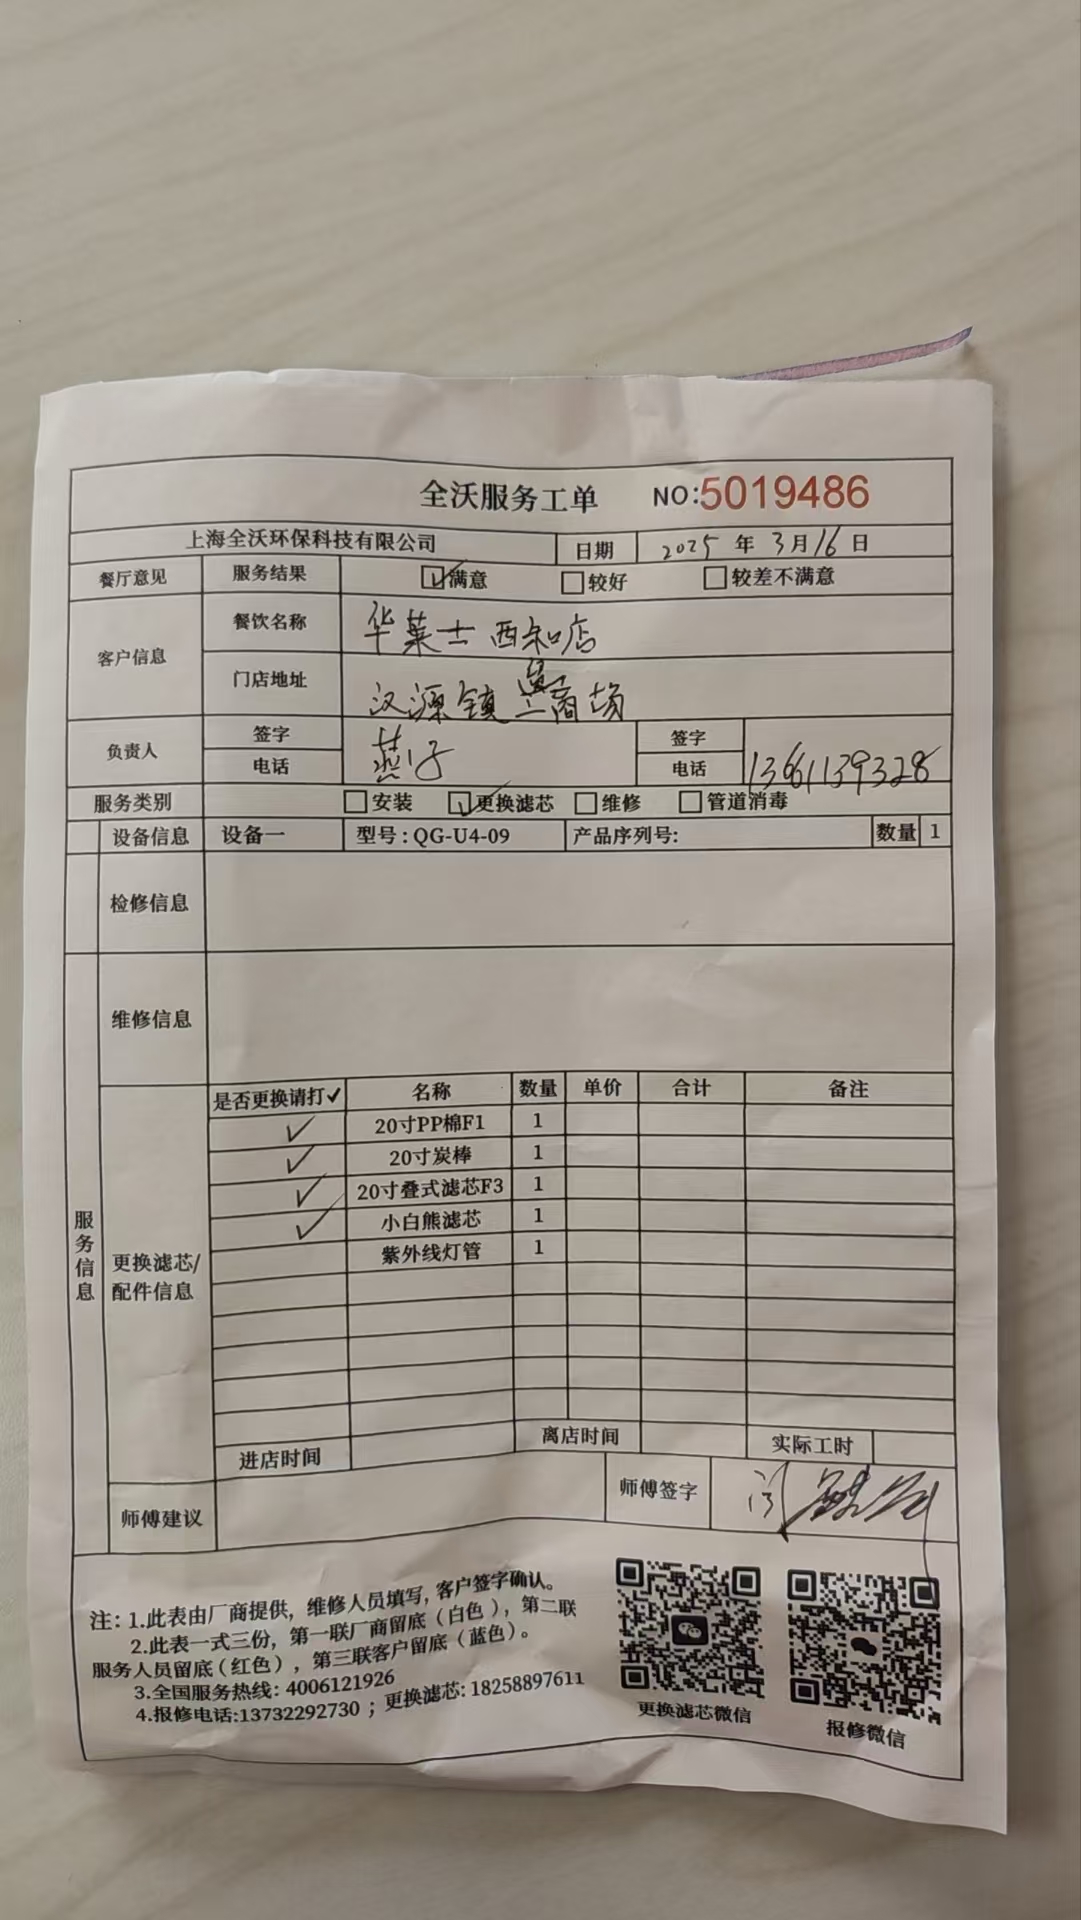 全沃服务工单 NO:5019486
上海全沃环保科技有限公司 日期 2025 年 3 月 16 日
餐厅意见 服务结果 ☑满意 □较好 □较差不满意
客户信息 餐饮名称 华莱士西知店
门店地址 汉源镇 商场
负责人 签字 燕子 签字
电话 电话 13661139328
服务类别 □安装 ☑更换滤芯 □维修 □管道消毒
设备信息 设备一 型号:QG-U4-09 产品序列号: 数量 1
检修信息
维修信息
服务信息
更换滤芯/配件信息
是否更换请打✓ 名称 数量 单价 合计 备注
✓ 20寸PP棉F1 1
✓ 20寸炭棒 1
✓ 20寸叠式滤芯F3 1
✓ 小白熊滤芯 1
紫外线灯管 1
进店时间 离店时间 实际工时
师傅建议 师傅签字
注: 1.此表由厂商提供, 维修人员填写, 客户签字确认。
2.此表一式三份, 第一联厂商留底(白色), 第二联
服务人员留底(红色), 第三联客户留底(蓝色)。
3.全国服务热线: 4006121926
4.报修电话:13732292730 ; 更换滤芯: 18258897611
更换滤芯微信 报修微信